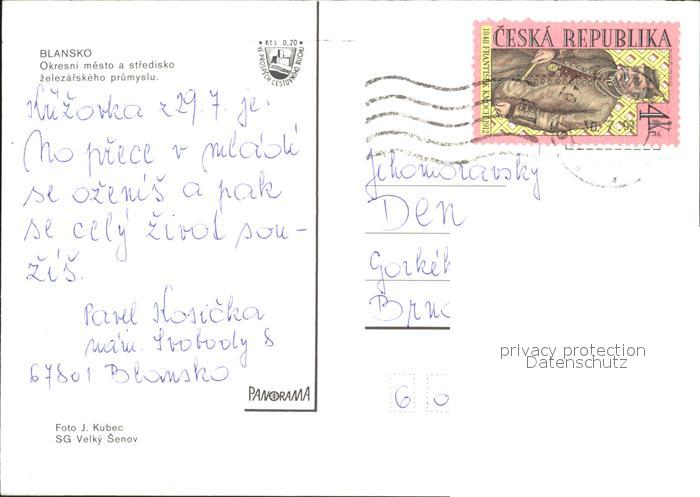 BLANSKO
Okresní město a středisko
železářského průmyslu.
Kčs 0,20
VE PROSPĚCH CESTOVNÍHO RUCHU
Křížovka z 29.7. je:
No přece v mládí
se oženíš a pak
se celý život sou-
žíš.
Pavel Kosička
nám. Svobody 8
67801 Blansko
PANORAMA
Foto J. Kubec
SG Velký Šenov
ČESKÁ REPUBLIKA
1848 FRANTIŠEK KMOCH 1912
4 Kč
Jihomoravský
Den
Gorkéh
Brno
6 0
privacy protection
Datenschutz